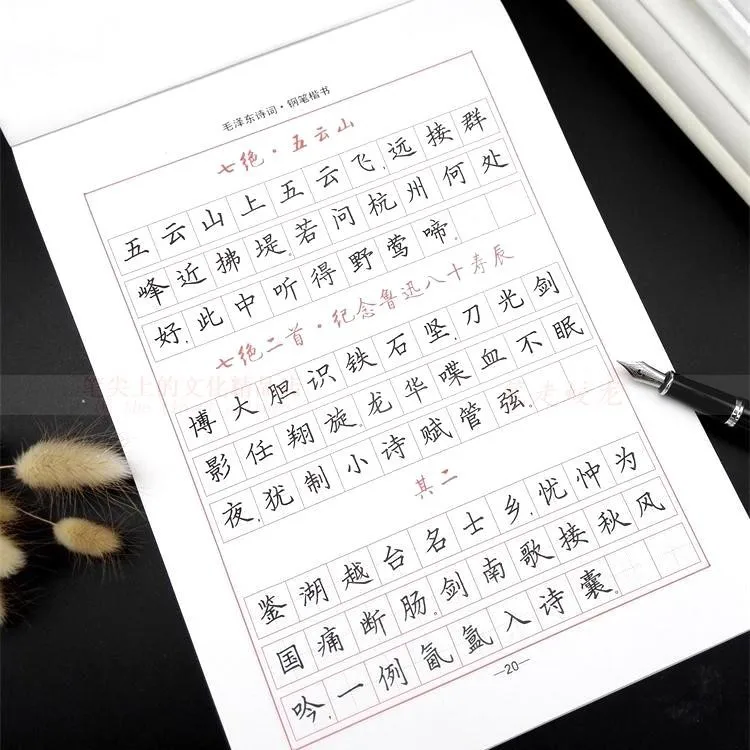 毛泽东诗词·钢笔楷书
七绝·五云山
五云山上五云飞,远接群
峰近拂堤。若问杭州何处
好,此中听得野莺啼。
七绝二首·纪念鲁迅八十寿辰
博大胆识铁石坚,刀光剑
影任翔旋。龙华喋血不眠
夜,犹制小诗赋管弦。
其二
鉴湖越台名士乡,忧忡为
国痛断肠。剑南歌接秋风
吟,一例氤氲入诗囊。
—20—